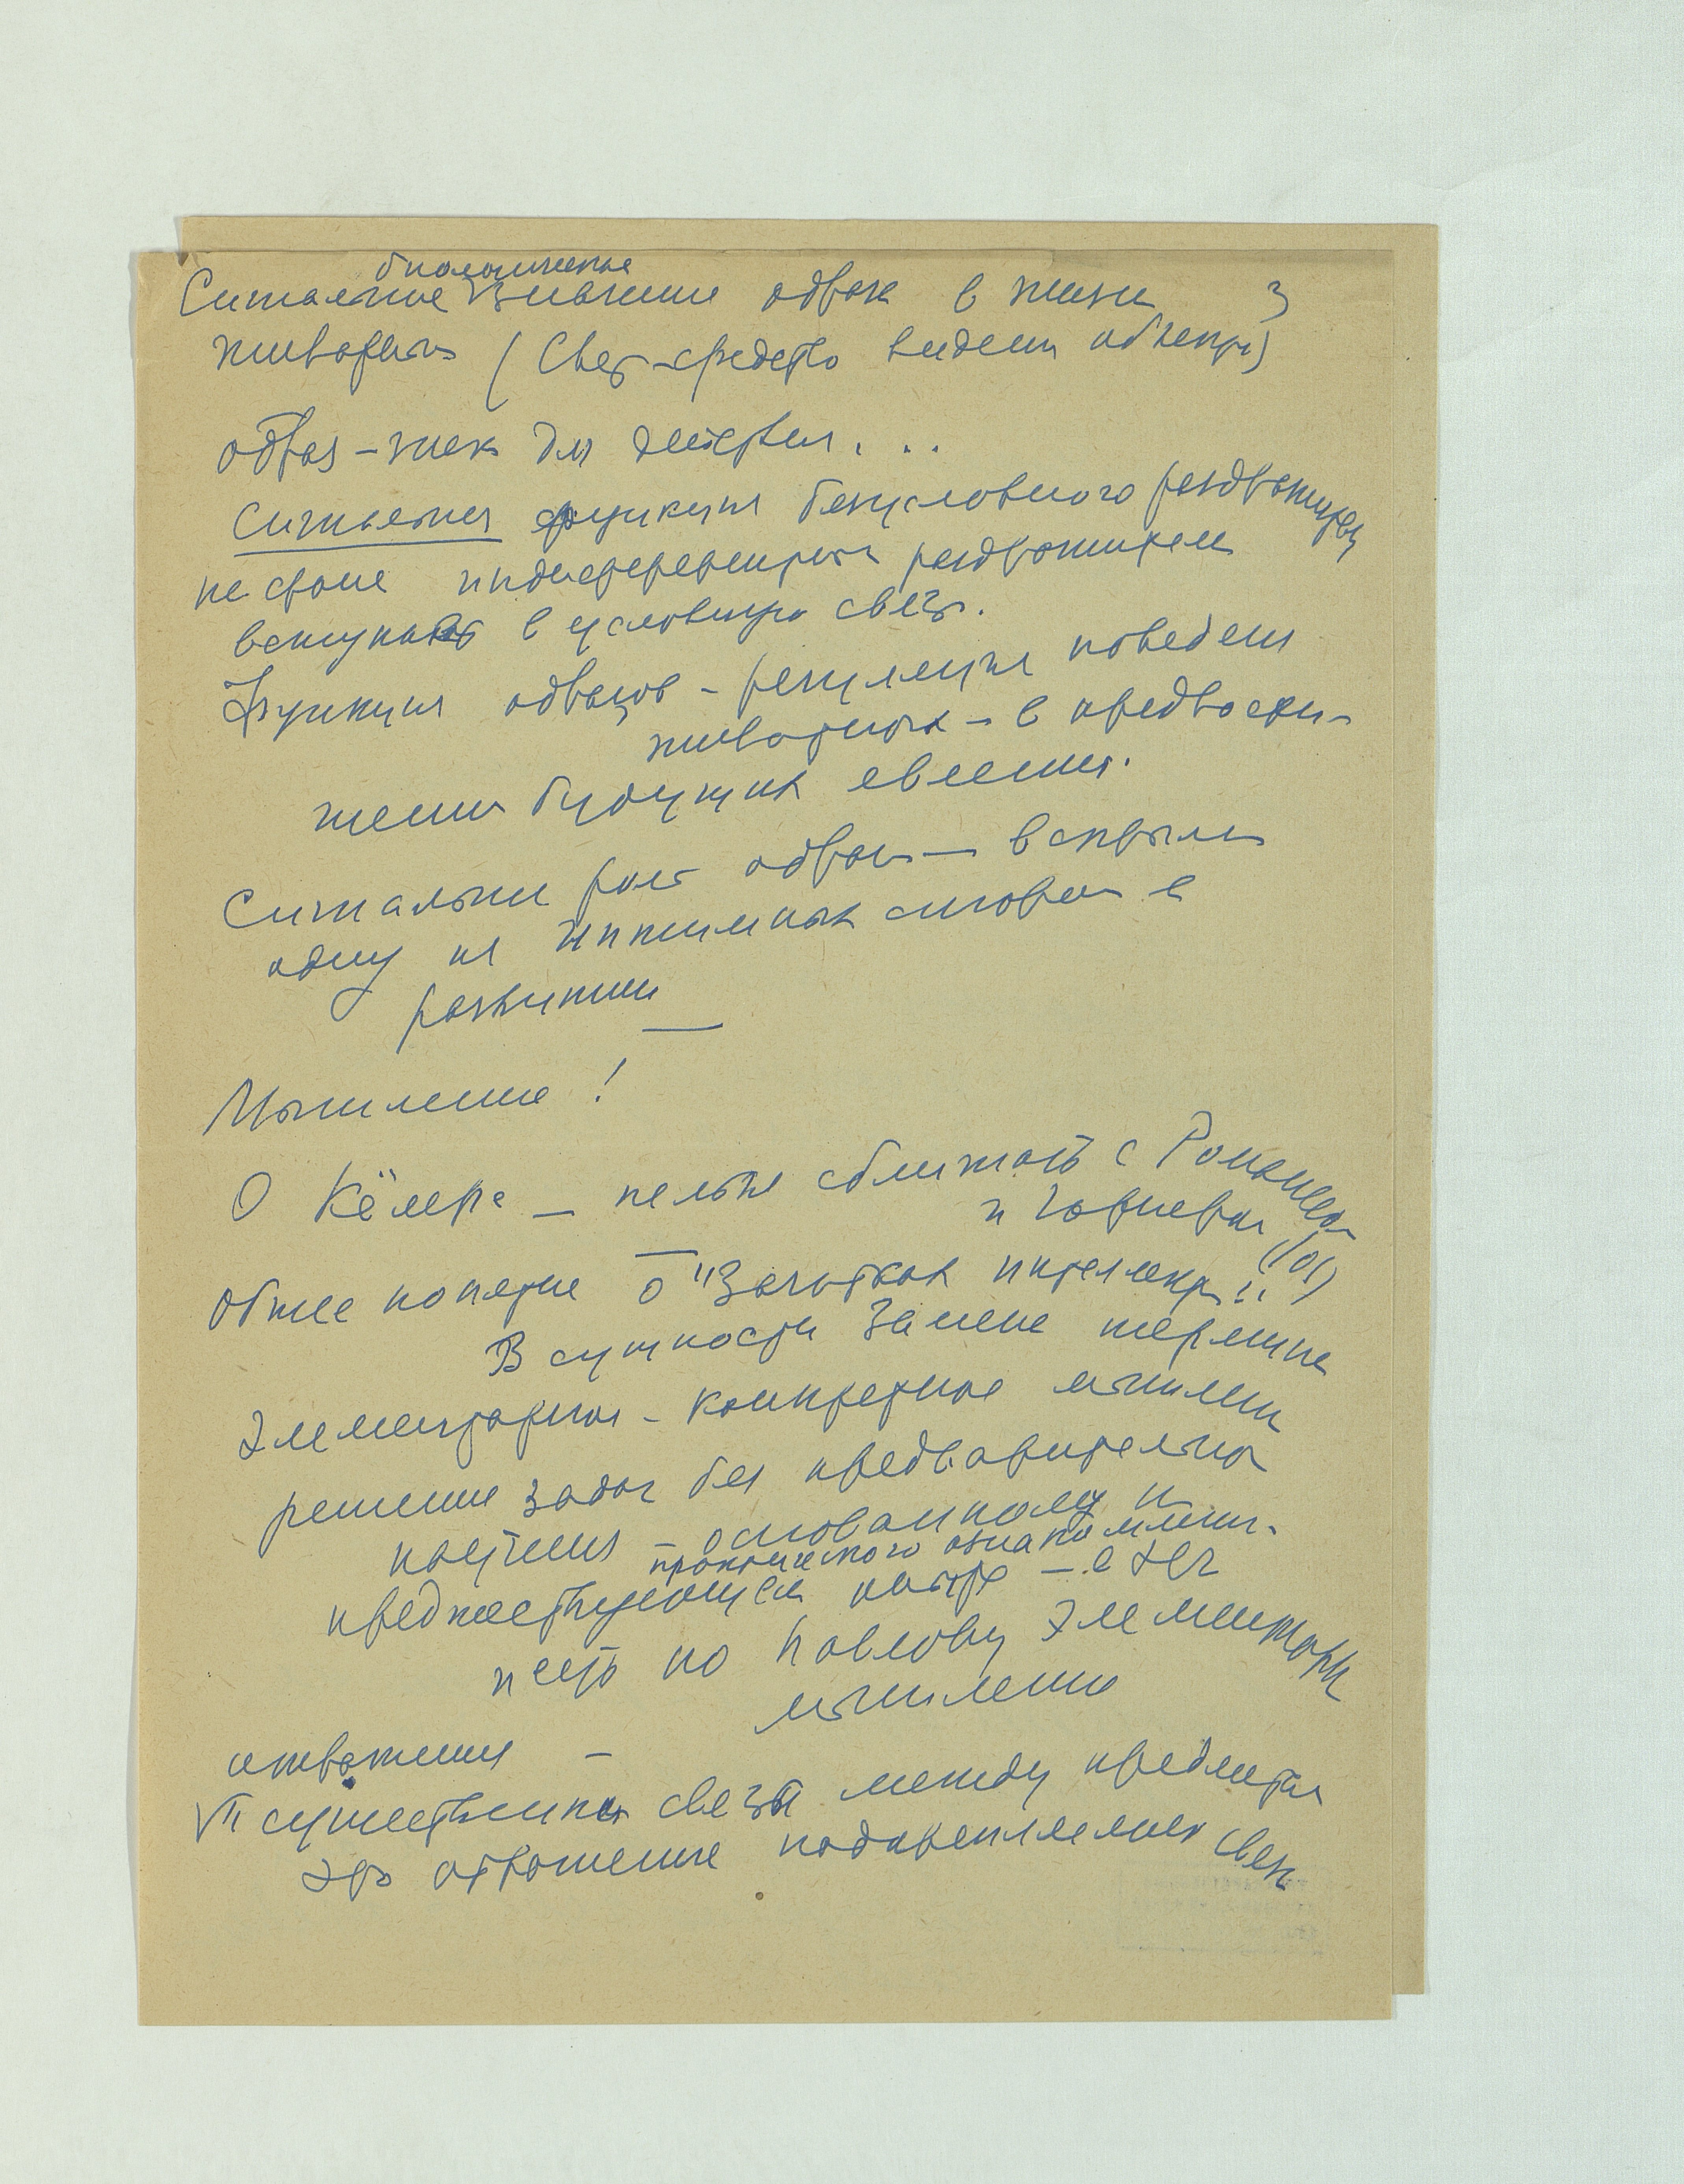 биологическое
Сигнальное значение образа в жизни 3
животных (Свет – средство видения объекта)
образ – знак для действия...
Сигнальная функция безусловного раздражителя
не стоит индифферентным раздражителем
вступать в условную связь.
Функция образов – регуляция поведения
животных – в предвосхи-
жении будущих явлений.
Сигнальная роль образа – вскрыли
одну из сторон в
развитии
Мышление!
О Кёлере – нельзя сближать с Романесом
и
общее понятие о "Зачатках интеллекта"!!
В сущности замена термина
Элементарное – конкретное мышление
решение задач без предварительного
научения – основанному и
практического ознакомлении-
предшествующем опыте – а это
и есть по Павлову элементарн
мышление
отражения –
существенных связей между предметами
это отражение подкрепляемых связей